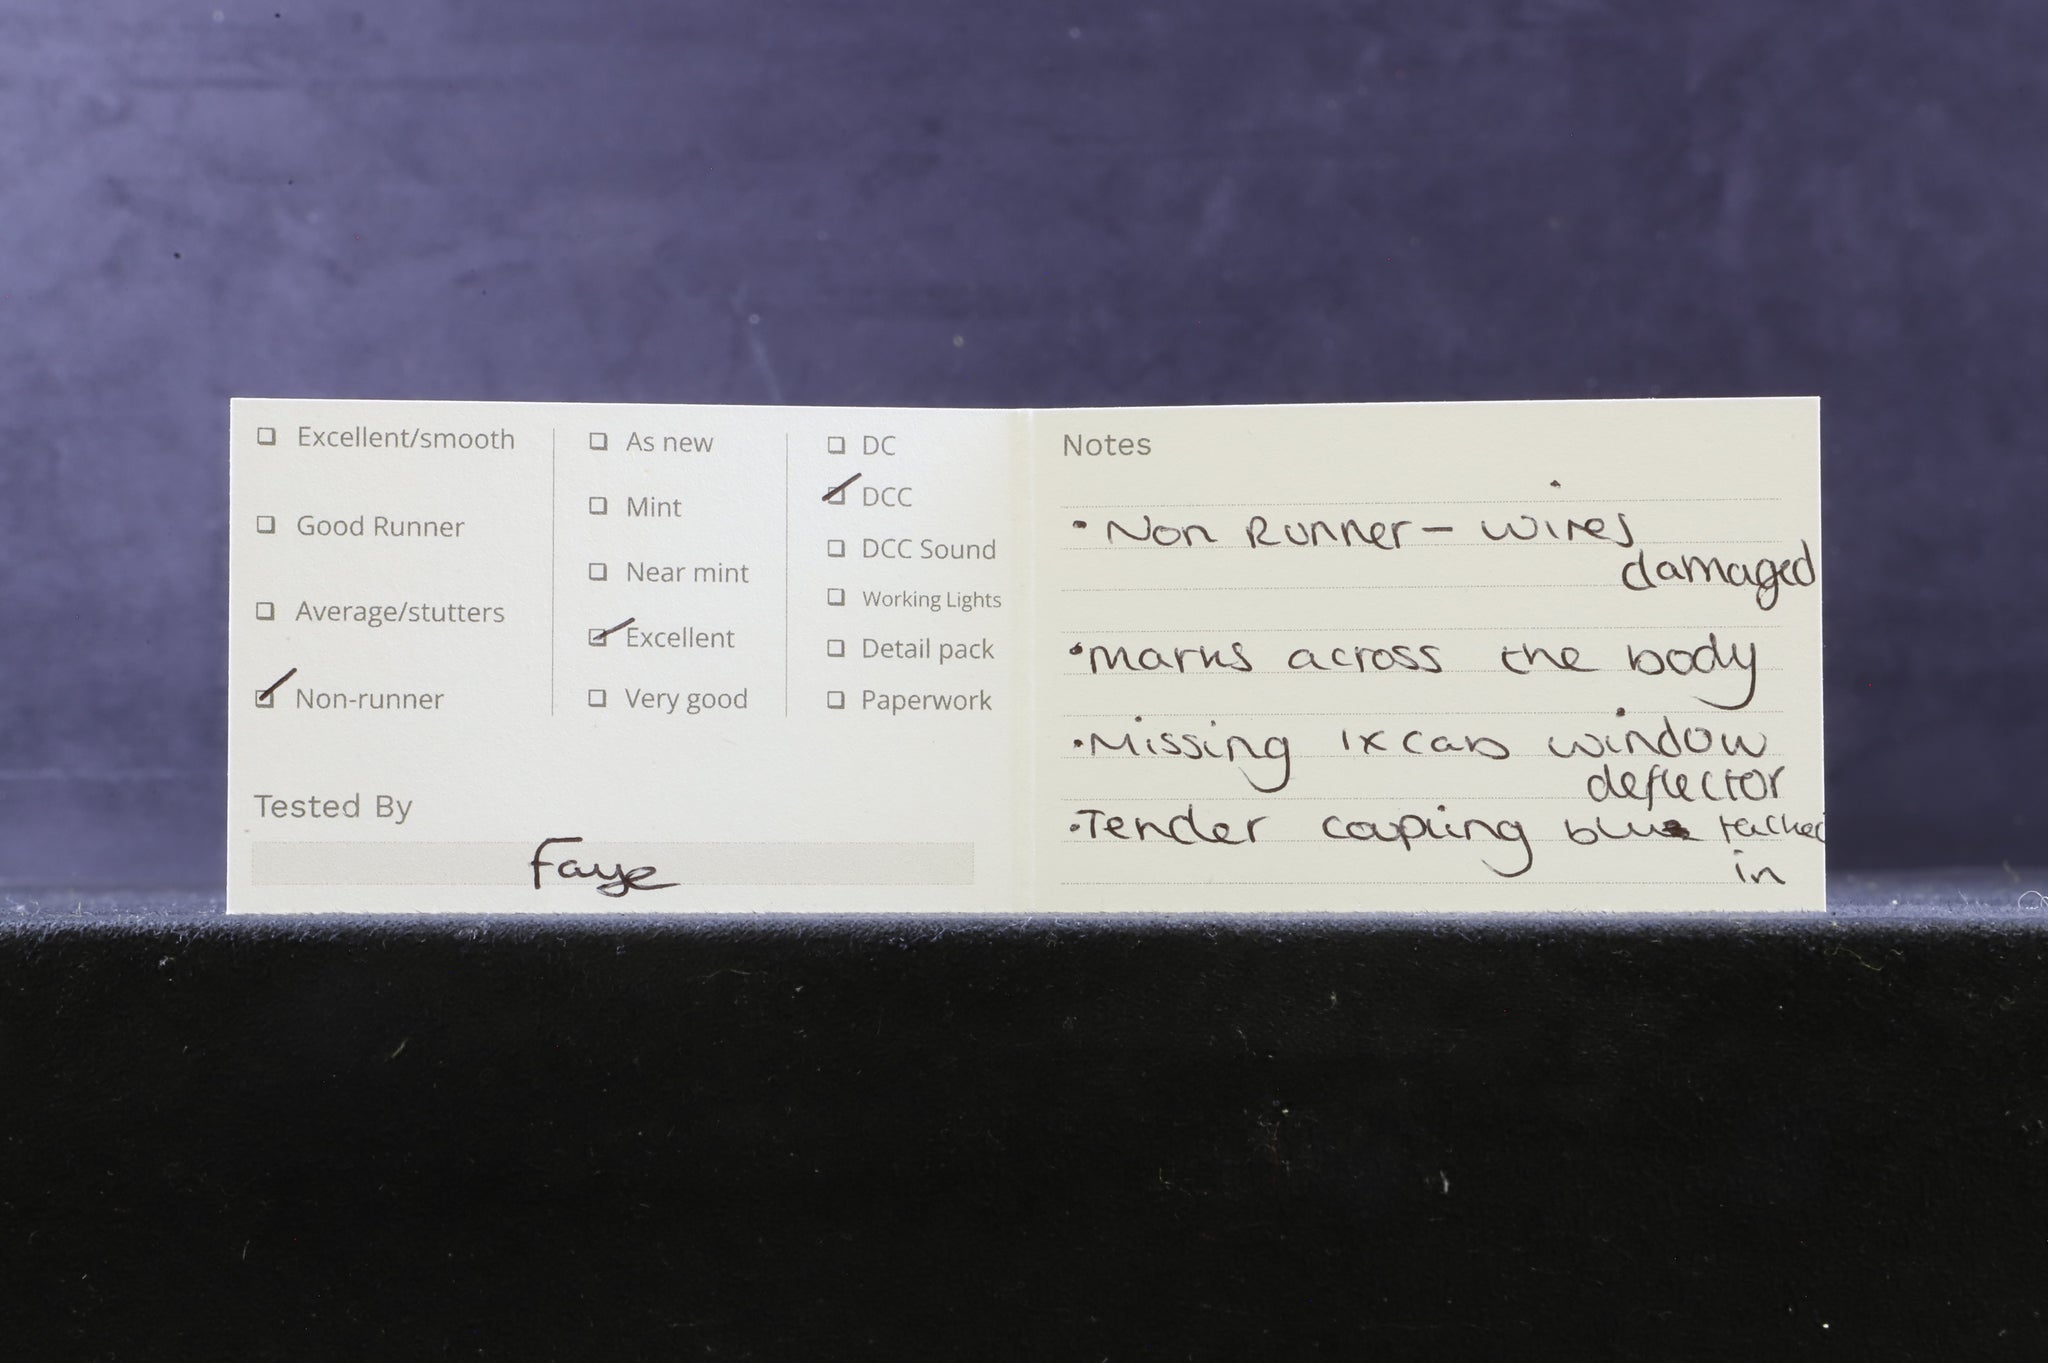 Excellent/smooth
Good Runner
Average/stutters
Non-runner
As new
Mint
Near mint
Excellent
Very good
DC
DCC
DCC Sound
Working Lights
Detail pack
Paperwork
Tested By
Faye
Notes
• Non Runner - wires
damaged
• marks across the body
• Missing 1x cab window
deflector
• Tender coupling blue tacked
in